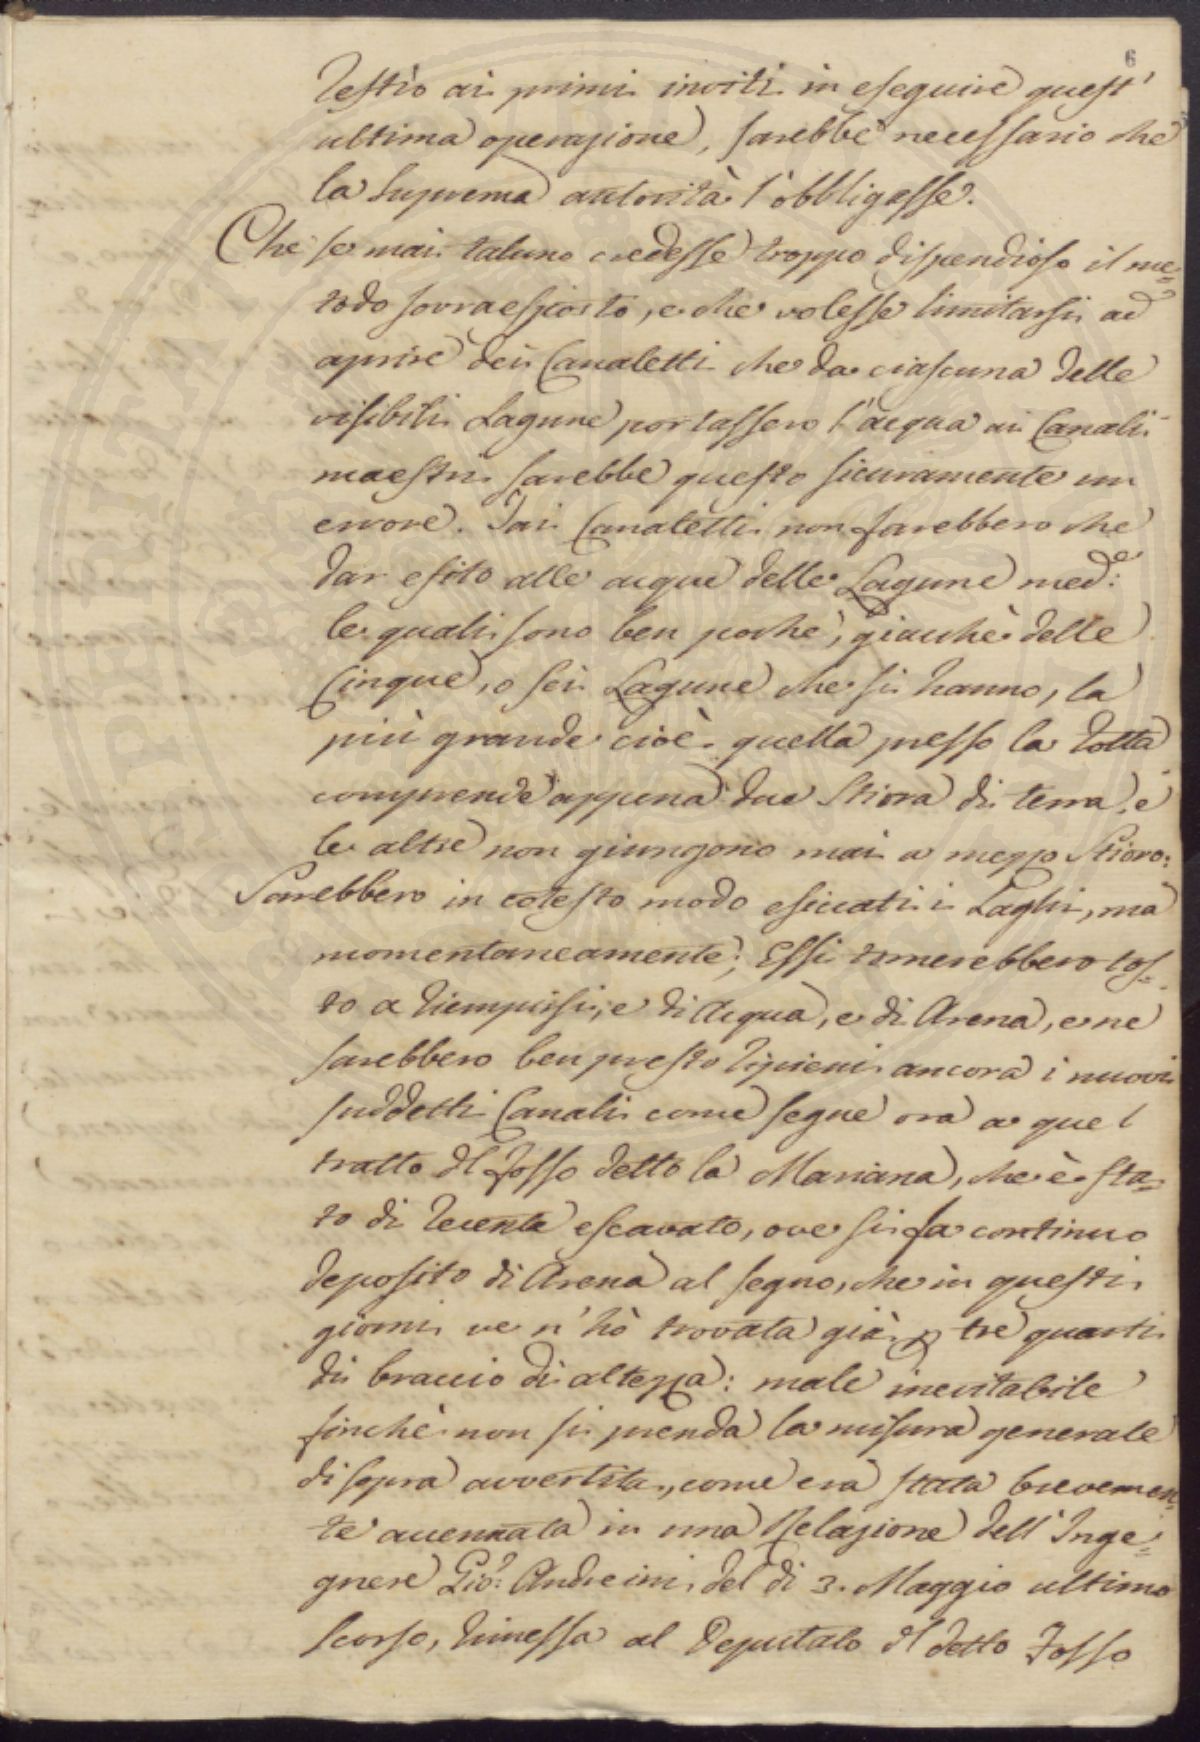 6
restìo ai primi inviti in eseguire quest'
ultima operazione, sarebbe necessario che
la Suprema autorità l'obbligasse.
Che se mai taluno credesse troppo dispendioso il me=
todo sovraesposto, e che volesse limitarsi ad
aprire dei Canaletti che da ciascuna delle
visibili Lagune portassero l'acqua ai Canali
maestri sarebbe questo sicuramente un
errore. Tai Canaletti non farebbero che
dar esito alle acque delle Lagune med:e
le quali sono ben poche, giacchè delle
Cinque, o sei Lagune che si hanno, la
più grande cioè quella presso la Rotta
comprende appena due Stiora di terra, e
le altre non giungono mai a mezzo Stioro:
Sarebbero in cotesto modo esiccati i Laghi, ma
momentaneamente; Essi tornerebbero tos=
to a riempirsi, e di Acqua, e di Arena, e ne
sarebbero ben presto ripieni ancora i nuovi
suddetti Canali come segue ora a quel
tratto dl Fosso detto la Mariana, che è sta=
to di recente escavato, ove si fa continuo
deposito di Arena al segno, che in questi
giorni ve n'hò trovata già p tre quarti
di braccio di altezza: male inevitabile
finchè non si prenda la misura generale
di sopra avvertita, come era stata brevemen=
te accennata in una Relazione dell'Inge=
gnere Gio: Andreini del dì 3. Maggio ultimo
scorso, rimessa al Deputato dl detto Fosso